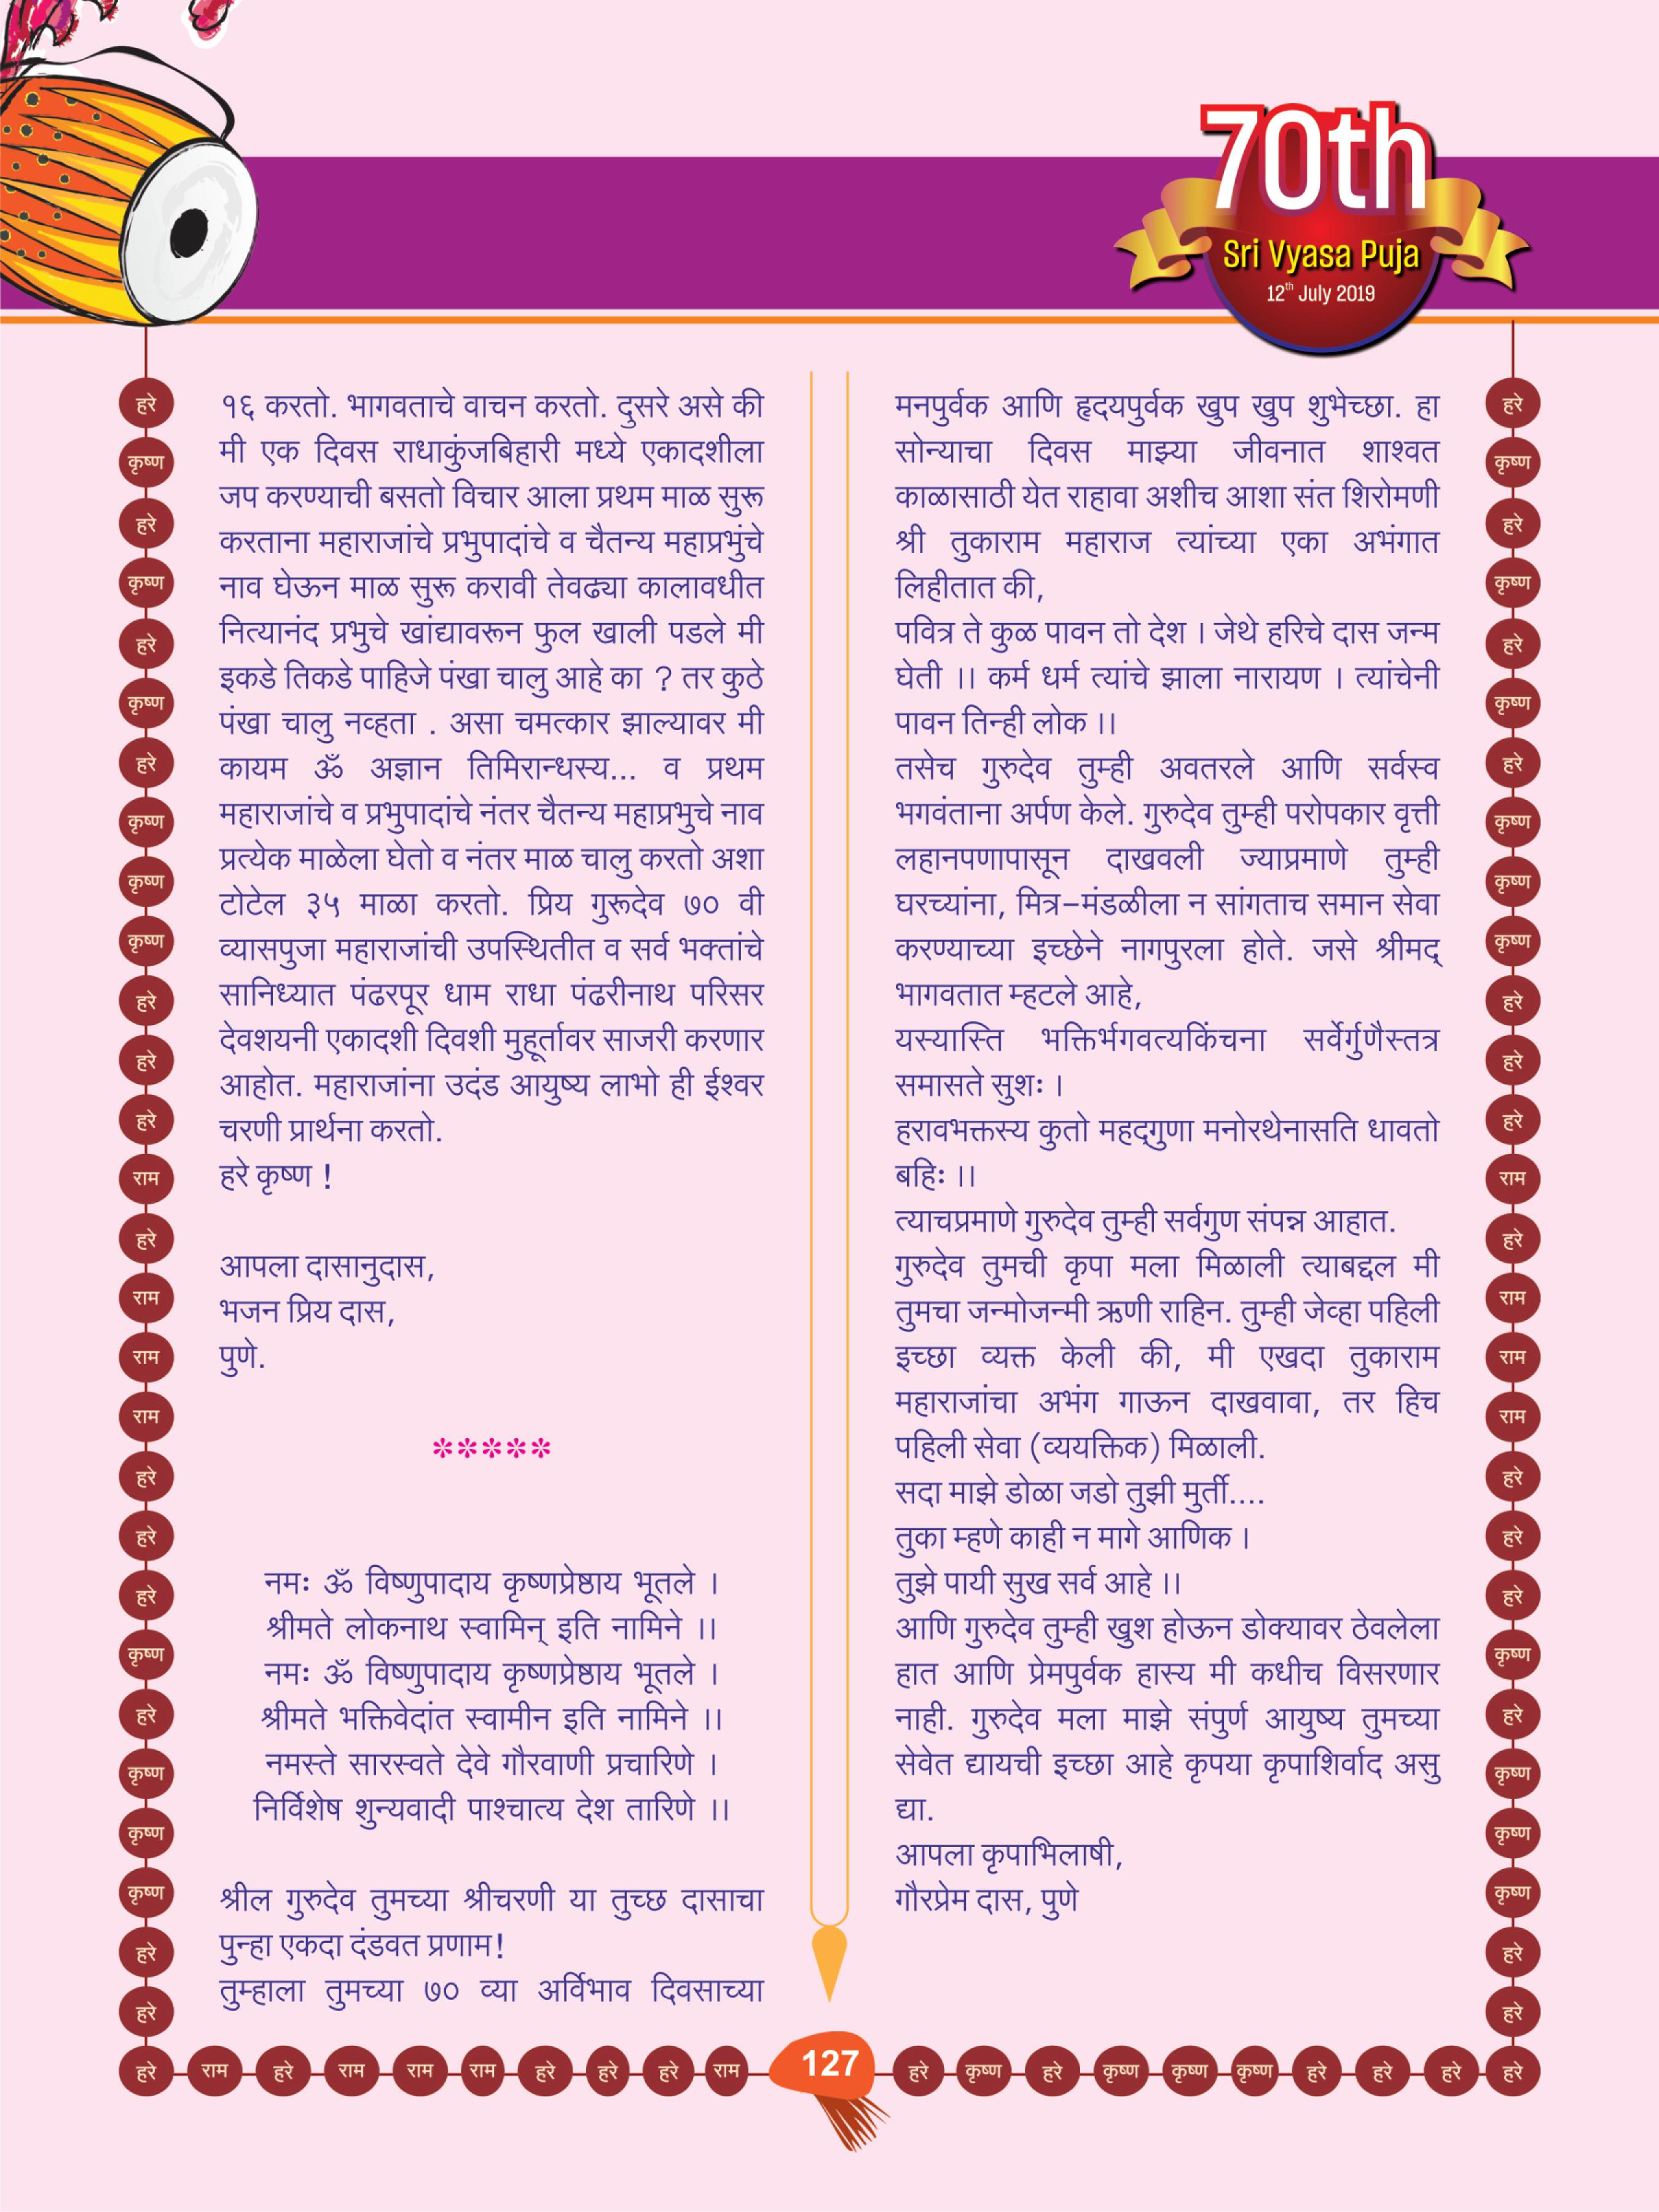 70th
Sri Vyasa Puja
12th July 2019
१६ करतो. भागवताचे वाचन करतो. दुसरे असे की
मी एक दिवस राधाकुंजबिहारी मध्ये एकादशीला
जप करण्याची बसतो विचार आला प्रथम माळ सुरू
करताना महाराजांचे प्रभुपादांचे व चैतन्य महाप्रभुंचे
नाव घेऊन माळ सुरू करावी तेवढ्या कालावधीत
नित्यानंद प्रभुचे खांद्यावरून फुल खाली पडले मी
इकडे तिकडे पाहिजे पंखा चालु आहे का ? तर कुठे
पंखा चालु नव्हता . असा चमत्कार झाल्यावर मी
कायम ॐ अज्ञान तिमिरान्धस्य... व प्रथम
महाराजांचे व प्रभुपादांचे नंतर चैतन्य महाप्रभुचे नाव
प्रत्येक माळेला घेतो व नंतर माळ चालु करतो अशा
टोटेल ३५ माळा करतो. प्रिय गुरूदेव ७० वी
व्यासपुजा महाराजांची उपस्थितीत व सर्व भक्तांचे
सानिध्यात पंढरपूर धाम राधा पंढरीनाथ परिसर
देवशयनी एकादशी दिवशी मुहूर्तावर साजरी करणार
आहोत. महाराजांना उदंड आयुष्य लाभो ही ईश्वर
चरणी प्रार्थना करतो.
हरे कृष्ण !
आपला दासानुदास,
भजन प्रिय दास,
पुणे.
*****
नमः ॐ विष्णुपादाय कृष्णप्रेष्ठाय भूतले ।
श्रीमते लोकनाथ स्वामिन् इति नामिने ।।
नमः ॐ विष्णुपादाय कृष्णप्रेष्ठाय भूतले ।
श्रीमते भक्तिवेदांत स्वामीन इति नामिने ।।
नमस्ते सारस्वते देवे गौरवाणी प्रचारिणे ।
निर्विशेष शुन्यवादी पाश्चात्य देश तारिणे ।।
श्रील गुरुदेव तुमच्या श्रीचरणी या तुच्छ दासाचा
पुन्हा एकदा दंडवत प्रणाम!
तुम्हाला तुमच्या ७० व्या अर्विभाव दिवसाच्या
मनपुर्वक आणि हृदयपुर्वक खुप खुप शुभेच्छा. हा
सोन्याचा दिवस माझ्या जीवनात शाश्वत
काळासाठी येत राहावा अशीच आशा संत शिरोमणी
श्री तुकाराम महाराज त्यांच्या एका अभंगात
लिहीतात की,
पवित्र ते कुळ पावन तो देश । जेथे हरिचे दास जन्म
घेती ।। कर्म धर्म त्यांचे झाला नारायण । त्यांचेनी
पावन तिन्ही लोक ।।
तसेच गुरुदेव तुम्ही अवतरले आणि सर्वस्व
भगवंताना अर्पण केले. गुरुदेव तुम्ही परोपकार वृत्ती
लहानपणापासून दाखवली ज्याप्रमाणे तुम्ही
घरच्यांना, मित्र-मंडळीला न सांगताच समान सेवा
करण्याच्या इच्छेने नागपुरला होते. जसे श्रीमद्
भागवतात म्हटले आहे,
यस्यास्ति भक्तिर्भगवत्यकिंचना सर्वेर्गुणैस्तत्र
समासते सुशः ।
हरावभक्तस्य कुतो महद्गुणा मनोरथेनासति धावतो
बहिः ।।
त्याचप्रमाणे गुरुदेव तुम्ही सर्वगुण संपन्न आहात.
गुरुदेव तुमची कृपा मला मिळाली त्याबद्दल मी
तुमचा जन्मोजन्मी ऋणी राहिन. तुम्ही जेव्हा पहिली
इच्छा व्यक्त केली की, मी एखदा तुकाराम
महाराजांचा अभंग गाऊन दाखवावा, तर हिच
पहिली सेवा (व्ययक्तिक) मिळाली.
सदा माझे डोळा जडो तुझी मुर्ती....
तुका म्हणे काही न मागे आणिक ।
तुझे पायी सुख सर्व आहे ।।
आणि गुरुदेव तुम्ही खुश होऊन डोक्यावर ठेवलेला
हात आणि प्रेमपुर्वक हास्य मी कधीच विसरणार
नाही. गुरुदेव मला माझे संपुर्ण आयुष्य तुमच्या
सेवेत द्यायची इच्छा आहे कृपया कृपाशिर्वाद असु
द्या.
आपला कृपाभिलाषी,
गौरप्रेम दास, पुणे
हरे
कृष्ण
हरे
कृष्ण
हरे
कृष्ण
हरे
कृष्ण
कृष्ण
कृष्ण
हरे
हरे
हरे
राम
हरे
राम
राम
राम
हरे
हरे
हरे
कृष्ण
हरे
कृष्ण
कृष्ण
कृष्ण
हरे
हरे
हरे
कृष्ण
हरे
कृष्ण
हरे
कृष्ण
हरे
कृष्ण
कृष्ण
कृष्ण
हरे
हरे
हरे
राम
हरे
राम
राम
राम
हरे
हरे
हरे
कृष्ण
हरे
कृष्ण
कृष्ण
कृष्ण
हरे
हरे
हरे राम हरे राम राम राम हरे हरे हरे राम 127 हरे कृष्ण हरे कृष्ण कृष्ण कृष्ण हरे हरे हरे हरे